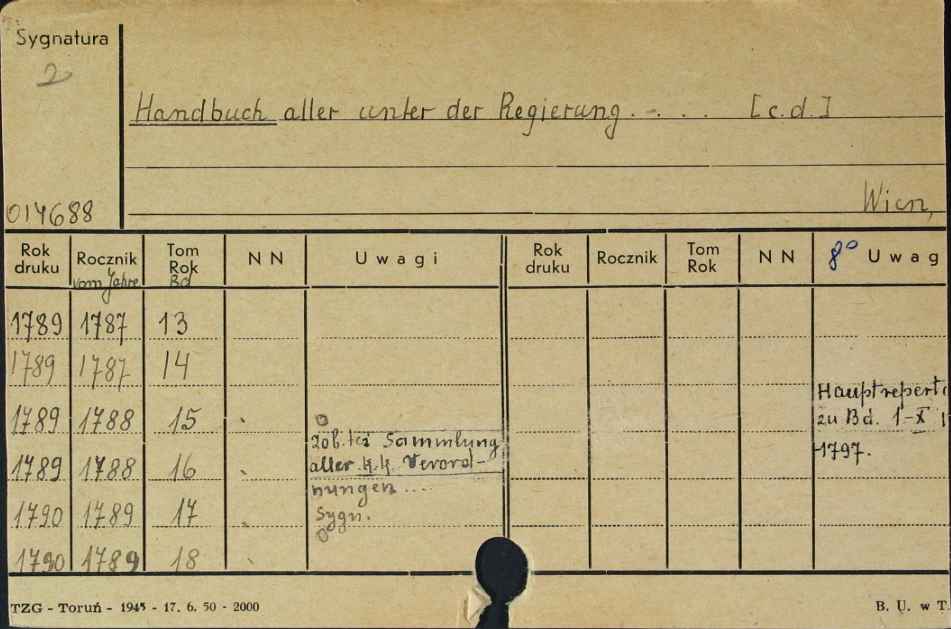 Sygnatura
2
Handbuch aller unter der Regierung . - . . . [c.d.]
014688
Wien,
Rok druku Rocznik Tom Rok NN Uwagi Rok druku Rocznik Tom Rok NN 8° Uwag
vom Jahre Bd
1789 1787 13
1789 1787 14
1789 1788 15
1789 1788 16
1790 1789 17
1790 1789 18
zob. też Sammlung
aller k.k. Verord-
nungen ....
Sygn.
Hauptreperti
zu Bd. 1-X
1797.
TZG - Toruń - 1945 - 17. 6. 50 - 2000
B. U. w T.